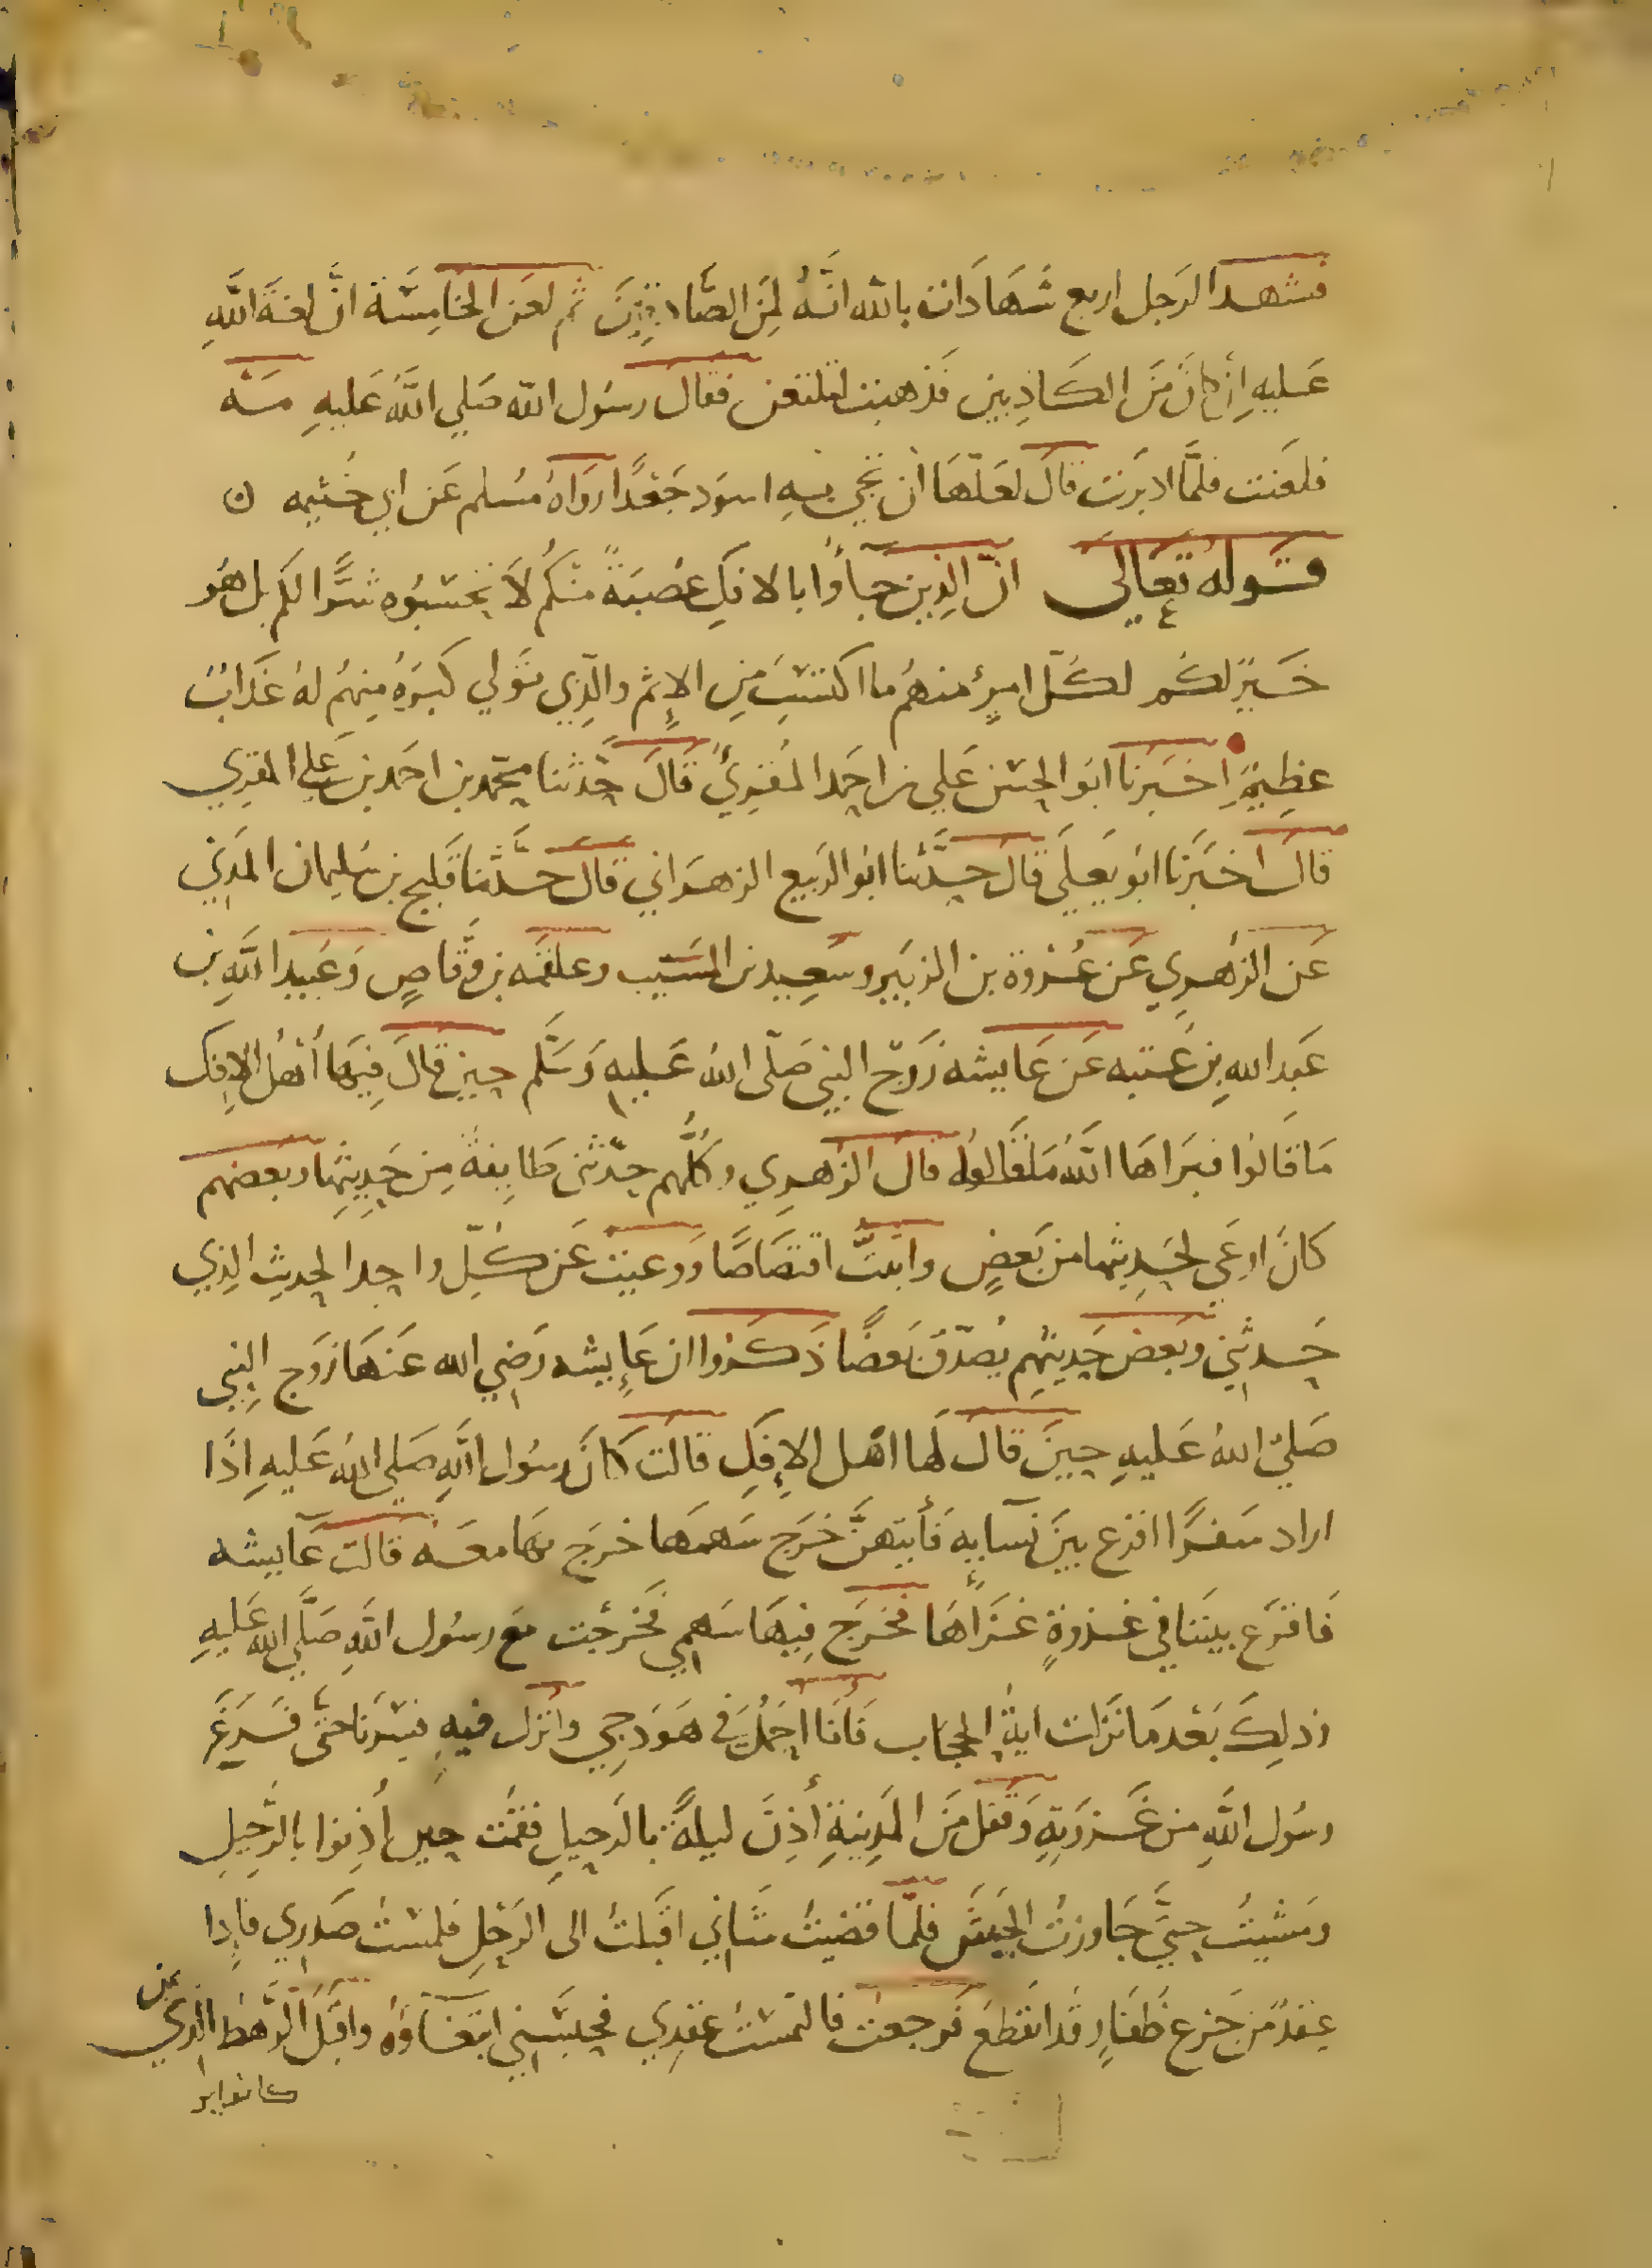 فشهد الرجل اربع شَهَادَات بالله انَّهُ لَمِنَ الصَّادقِينَ ثم لعَن الخامِسَة انَّ لعنةَ اللَّهِ
عَليهِ إن كانَ مِنَ الكَاذِبين فَذهبت لتلتعن فقال رسُول الله صَلي اللَّهُ عَليهِ مَـه
فلعَنت فلمَّا ادبَرت قالَ لعَلّهَا ان تجي بـهِ اسوَد جَعْدًا رَوَاهُ مسُلم عَن ابي خُثيمه ن
قـوله تعَالى انّ الذِين جآءُوا بالافكِ عُصْبَةٌ منكُم لاَ تحسَبُوه شَرًّا لكم بل هُو
خَـيرٌ لكُم لكُلّ امرِئ منهُم ما اكتسَبَ مِن الإِثم والَّذِي تَوَلي كبرَهُ مِنهُم لهُ عَذابٌ
عظِيمٌ اخـبَرنا ابوَ الحسَن عَلي بن احمَد المُقرِئُ قَالَ حَدثنا محمّد بن احمَد بن علي المقرِي
قالَ اخـبَرَنا ابَو يعَلَى قال حدَّثنا ابوَ الرَبيع الزهـرَاني قال حَدَّثنا فَليح بن سُليمان المدَني
عَن الزهُرِي عَن عُرْوة بن الزبَير وسَعِيد بن المسَيب وعلقمَه بن وقَّاصٍ وَعَبيد اللَّهِ بن
عَبد الله بِن عُتبه عَن عَايشه زَوَج النبي صَلّى اللهُ عَليهِ وَسَلَّم حِين قالَ فِيهَا أهْلُ الإفك
مَا قَالوُا فبَرَاهَا اللَّهُ مَما قَالوُا قال الزهُرِي وكلُّهم حدّثني طَايِفةٌ مِن حَدِيثِها وبعَضهم
كانَ اوعَى لحَدِيثها من بَعضٍ واثبَتَّ اقتصَاصًا وَوعَيت عَن كـلّ واحِد الحدِيث الذِي
حَدثني وَبعض حَديثهم يصُدّق بَعضًا ذَكَروُا ان عَايشه رَضِي الله عَنهَا زوَج النبِي
صَليّ اللهُ عَليهِ حِينَ قالَ لَها اهْل الإفكِ قالَت كانَ رسُول اللَّهِ صَلي اللهُ عَليهِ اِذَا
اراد سَفرًا اقرَع بينَ نسآيهِ فَأيتهنَّ خَرَج سَهمَهَا خرَج بهَا معَـهُ قَالت عَآيشه
فَاقرَع بينَنا في غَزوةٍ غَزَاهَا فخرَج فِيهَا سَهمِي فخَرجْت مَع رسوُل اللَّهِ صَلَّي الله عَليهِ
وَذلِكَ بَعْد مَا نزَلت ايةُ الحِجَاب فَانَا احمَلُ في هَودَجِي وانزل فيهِ فسِرنَا حَتَّى فَـرَغَ
رسوُل اللَّهِ من غَـزوَتِهِ وَقفل مَن المَدِينةِ أُذِنَ ليلةً بالرَحيلِ فقمْت حِين أُذِنوُا بالرَحِيلِ
ومَشيتُ حتَّى جَاوزتُ الجيشَ فلَمّا قضيْتُ شَانِي اقبَلتُ الى الرَحْلِ فلمَستُ صَدرِي فَإذا
عِقدٌ مّن جَزعِ ظَفَارِ قَدْ انقطعَ فَرجعْت فالتَمسْتُ عقدِي فحبَسَني ابتغَاؤهُ وَاقبَلَ الرَّهطُ الذي
ن
كانوايز